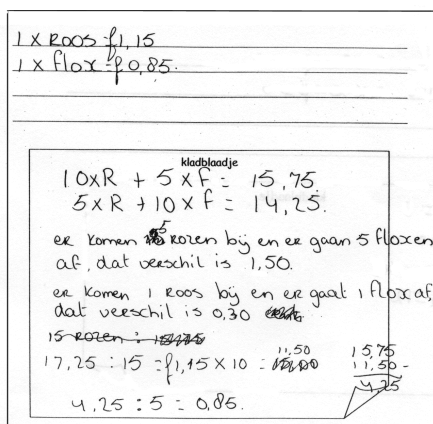 1 x ROOS = f1,15
1 x flox = f 0,85.
kladblaadje
10xR + 5 x F = 15,75.
5 x R + 10 x F = 14,25.
er komen 5 rozen bij en er gaan 5 floxen
af, dat verschil is 1,50.
er komen 1 roos bij en er gaat 1 flox af,
dat verschil is 0,30
15 rozen :
17,25 : 15 = f1,15 x 10 = 11,50
15,75
11,50 -
4,25
4,25 : 5 = 0,85.